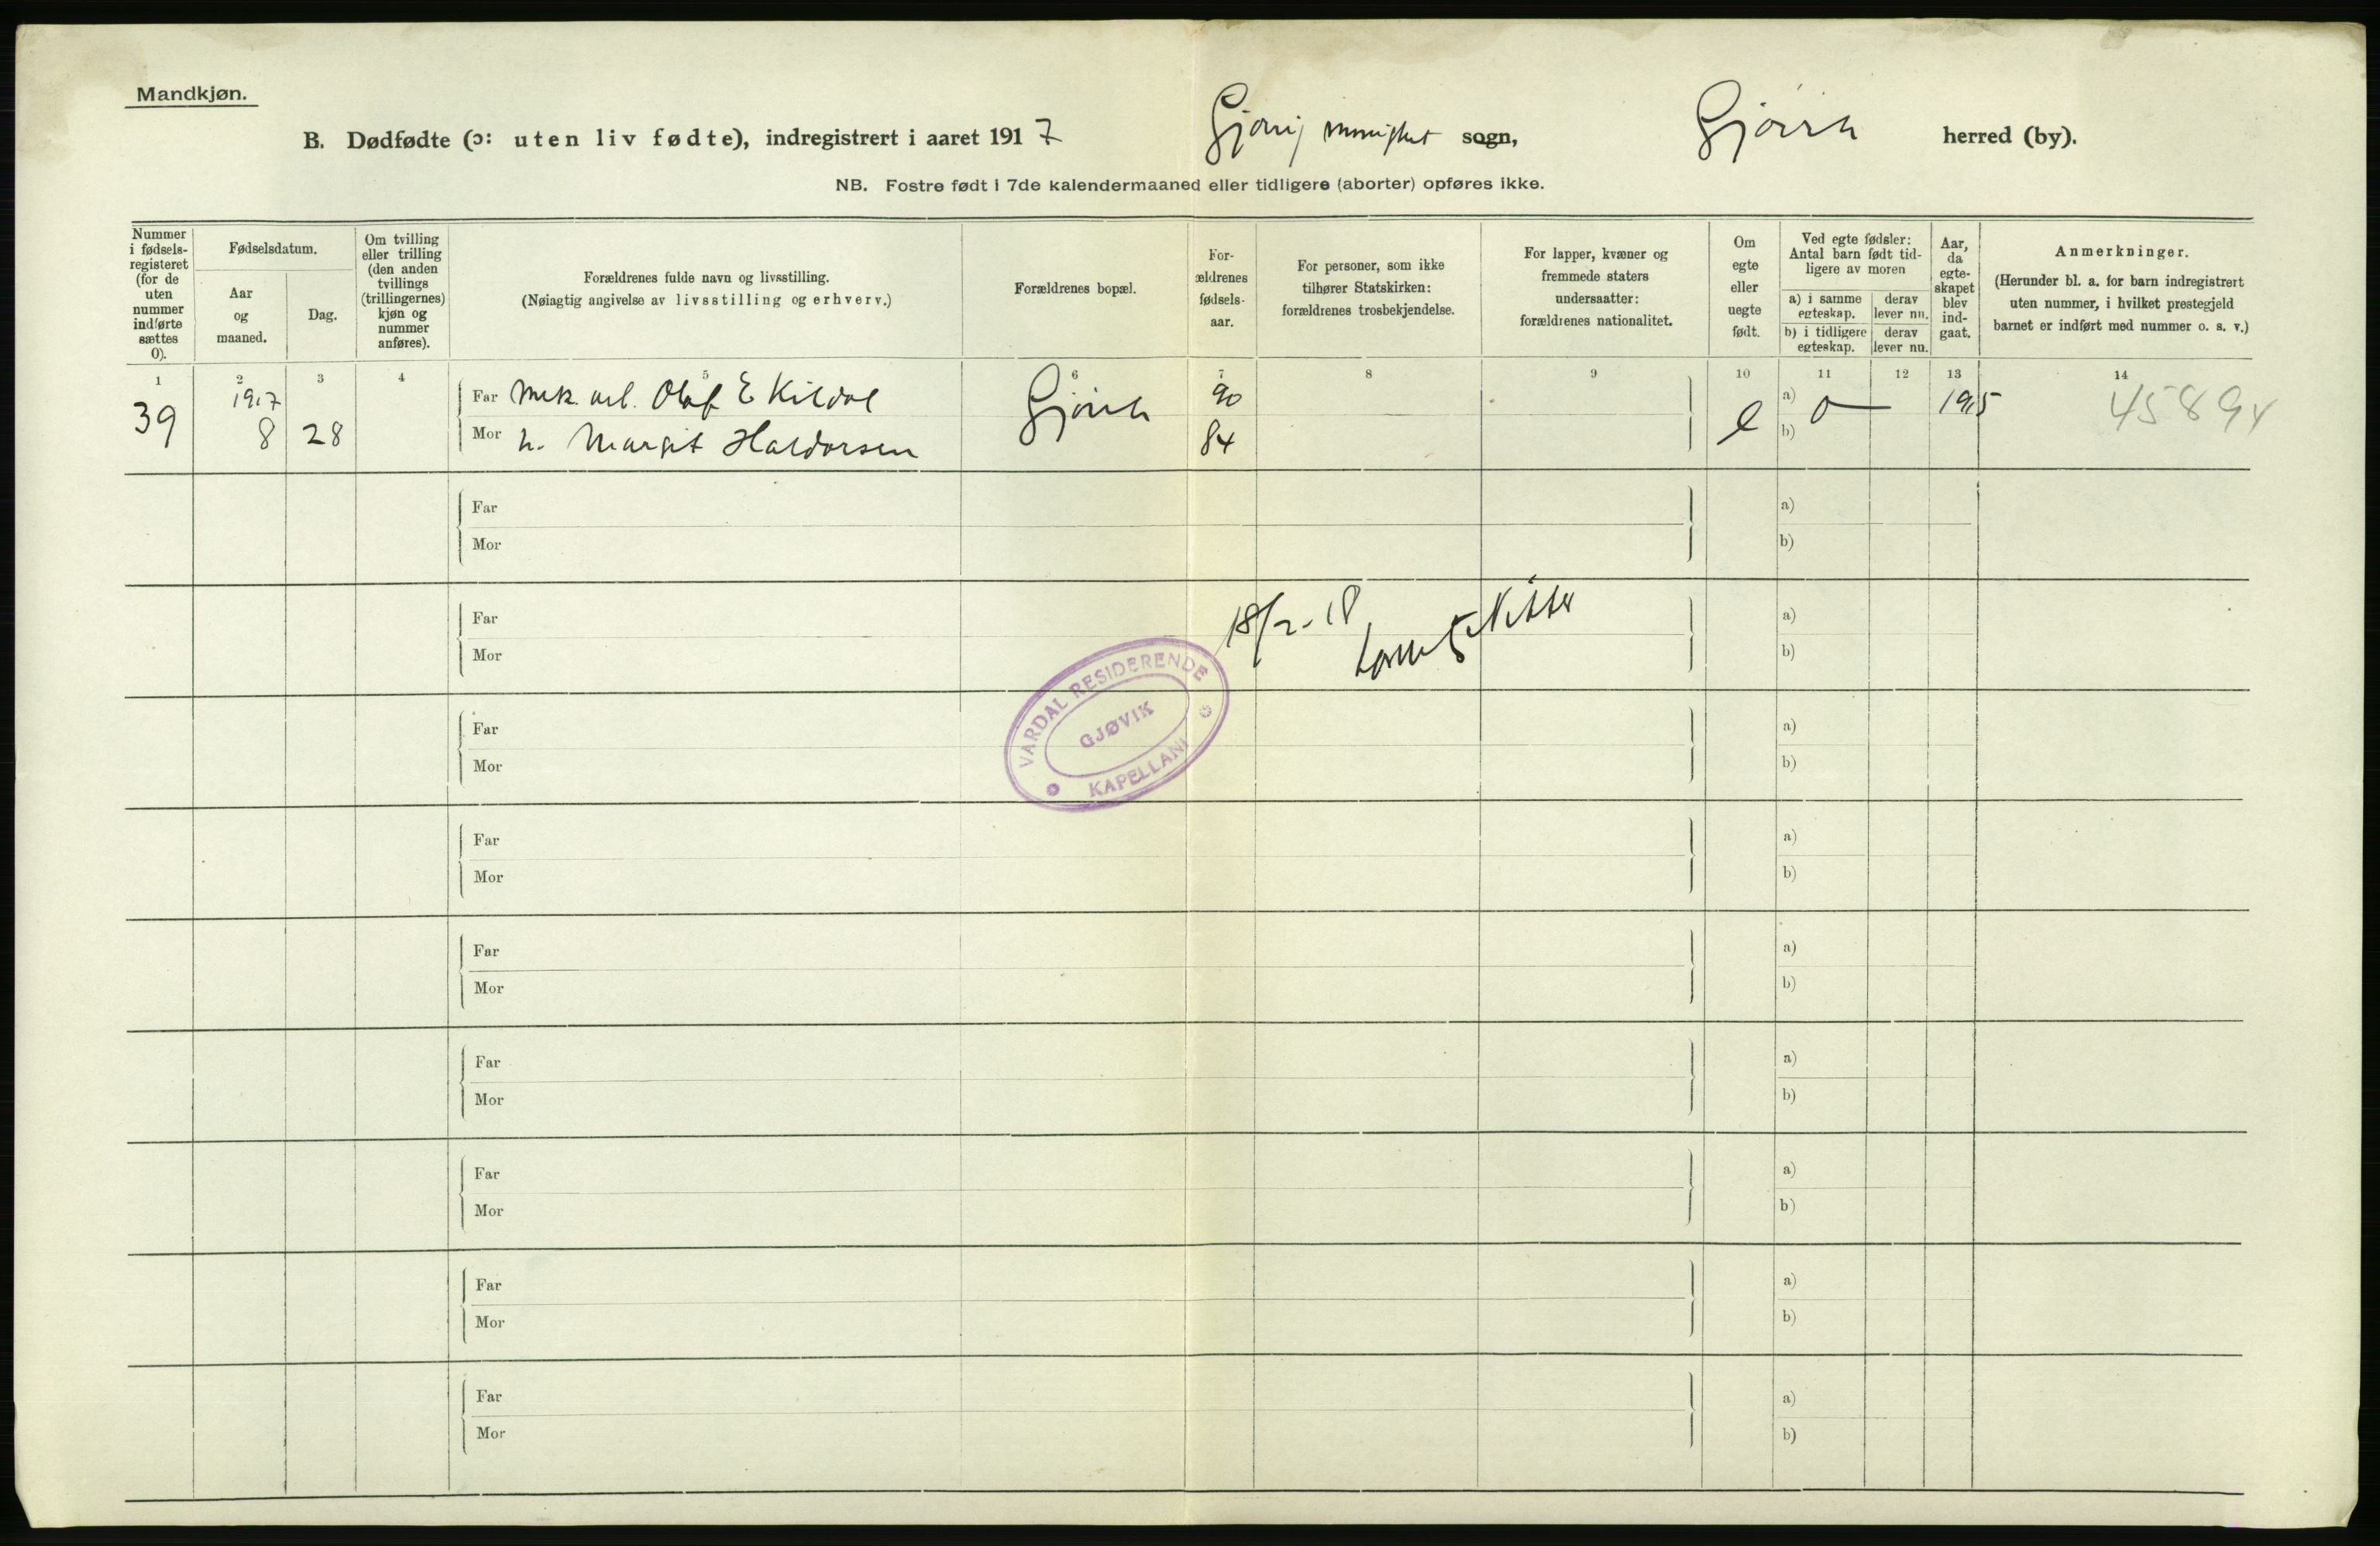 Mandkjøn.
B. Dødfødte (ɔ: uten liv fødte), indregistrert i aaret 1917 Gjøvig menighet sogn, Gjøvik herred (by).
NB. Fostre født i 7de kalendermaaned eller tidligere (aborter) opføres ikke.
Nummer i fødsels-registeret (for de uten nummer indførte sættes 0).
Fødselsdatum.
Aar og maaned.
Dag.
Om tvilling eller trilling (den anden tvillings (trillingernes) kjøn og nummer anføres).
Forældrenes fulde navn og livsstilling.
(Nøiagtig angivelse av livsstilling og erhverv.)
Forældrenes bopæl.
For-ældrenes fødsels-aar.
For personer, som ikke tilhører Statskirken: forældrenes trosbekjendelse.
For lapper, kvæner og fremmede staters undersaatter: forældrenes nationalitet.
Om egte eller uegte født.
Ved egte fødsler: Antal barn født tid-ligere av moren
a) i samme egteskap.
derav lever nu.
b) i tidligere egteskap.
derav lever nu.
Aar, da egte-skapet blev ind-gaat.
Anmerkninger.
(Herunder bl. a. for barn indregistrert uten nummer, i hvilket prestegjeld barnet er indført med nummer o. s. v.)
1 2 3 4 5 6 7 8 9 10 11 12 13 14
39 1917 8 28 Far Mek. arb. Olaf E Kildal Gjøvik 90 e a) 0 1915 45894
Mor h. Margit Haldorsen 84 b)
Far a)
Mor b)
Far 18/2-18 a)
Mor b)
VARDAL RESIDERENDE
GJØVIK
KAPELLANI
Far a)
Mor b)
Far a)
Mor b)
Far a)
Mor b)
Far a)
Mor b)
Far a)
Mor b)
Far a)
Mor b)
Far a)
Mor b)